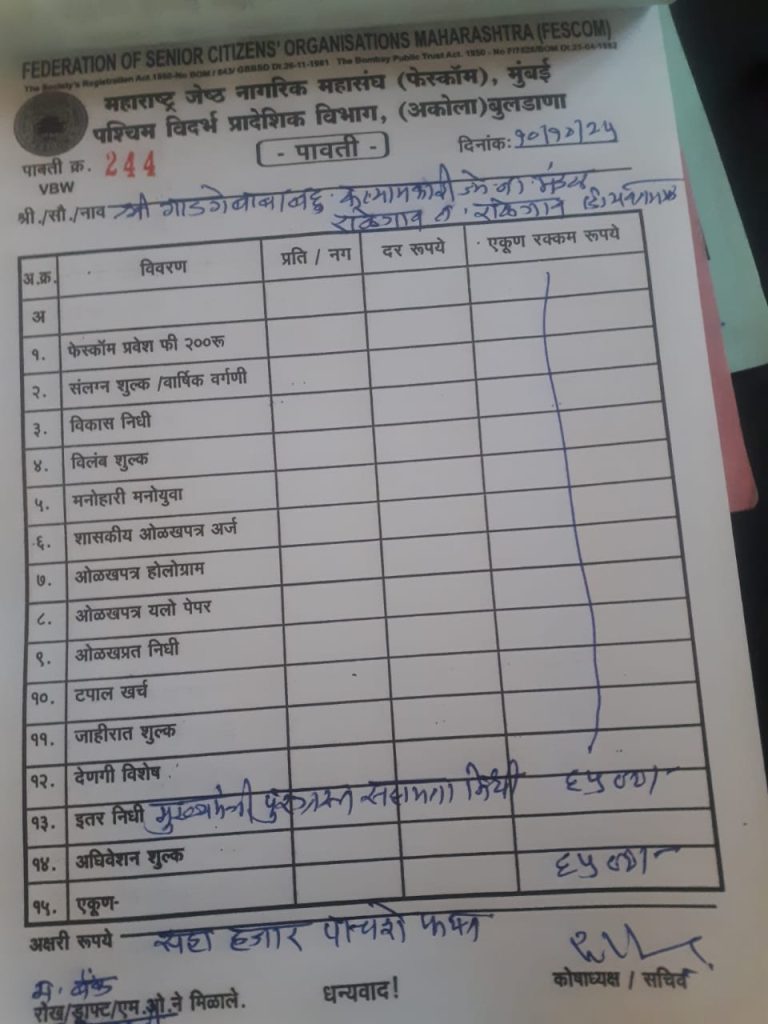 FEDERATION OF SENIOR CITIZENS' ORGANISATIONS MAHARASHTRA (FESCOM)
The Society's Registration Act. 1860-No BOM / 843/ GBBSD Dt.26-11-1981 The Bombay Public Trust Act. 1950 - No
महाराष्ट्र जेष्ठ नागरिक महासंघ (फेस्कॉम), मुंबई
पश्चिम विदर्भ प्रादेशिक विभाग, (अकोला)बुलडाणा
- पावती -
दिनांक: १०/१०/२५
पावती क्र. 244
VBW
श्री./सौ./नाव श्री गाडगेबाबा बहु. कल्याणकारी जे ना मंडळ
राळेगाव त. राळेगाव
अ.क्र. विवरण प्रति / नग दर रूपये एकूण रक्कम रूपये
अ
१. फेस्कॉम प्रवेश फी २००रू
२. संलग्न शुल्क /वार्षिक वर्गणी
३. विकास निधी
४. विलंब शुल्क
५. मनोहारी मनोयुवा
६. शासकीय ओळखपत्र अर्ज
७. ओळखपत्र होलोग्राम
८. ओळखपत्र यलो पेपर
९. ओळखप्रत निधी
१०. टपाल खर्च
११. जाहीरात शुल्क
१२. देणगी विशेष
१३. इतर निधी मुख्यमंत्री पुरग्रस्त सहायता निधी ६५००/-
१४. अधिवेशन शुल्क
१५. एकूण- ६५००/-
अक्षरी रूपये सहा हजार पाचशे फक्त
म. बँक
रोख/ड्राफ्ट/एम.ओ.ने मिळाले. धन्यवाद! कोषाध्यक्ष / सचिव